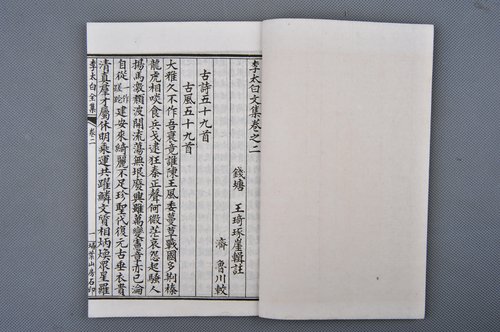 李太白文集卷之二
錢塘 王琦琢崖輯註
濟 魯川較
古詩五十九首
古風五十九首
大雅久不作吾衰竟誰陳王風委蔓草戰國多荆榛
龍虎相啖食兵戈逮狂秦正聲何微茫哀怨起騷人
揚馬激頹波開流蕩無垠廢興雖萬變憲章亦已淪
自從一作蹉跎建安來綺麗不足珍聖代復元古垂衣貴
清真羣才屬休明乘運共躍鱗文質相炳煥眾星羅
李太白全集 卷二 一 埽葉山房石印